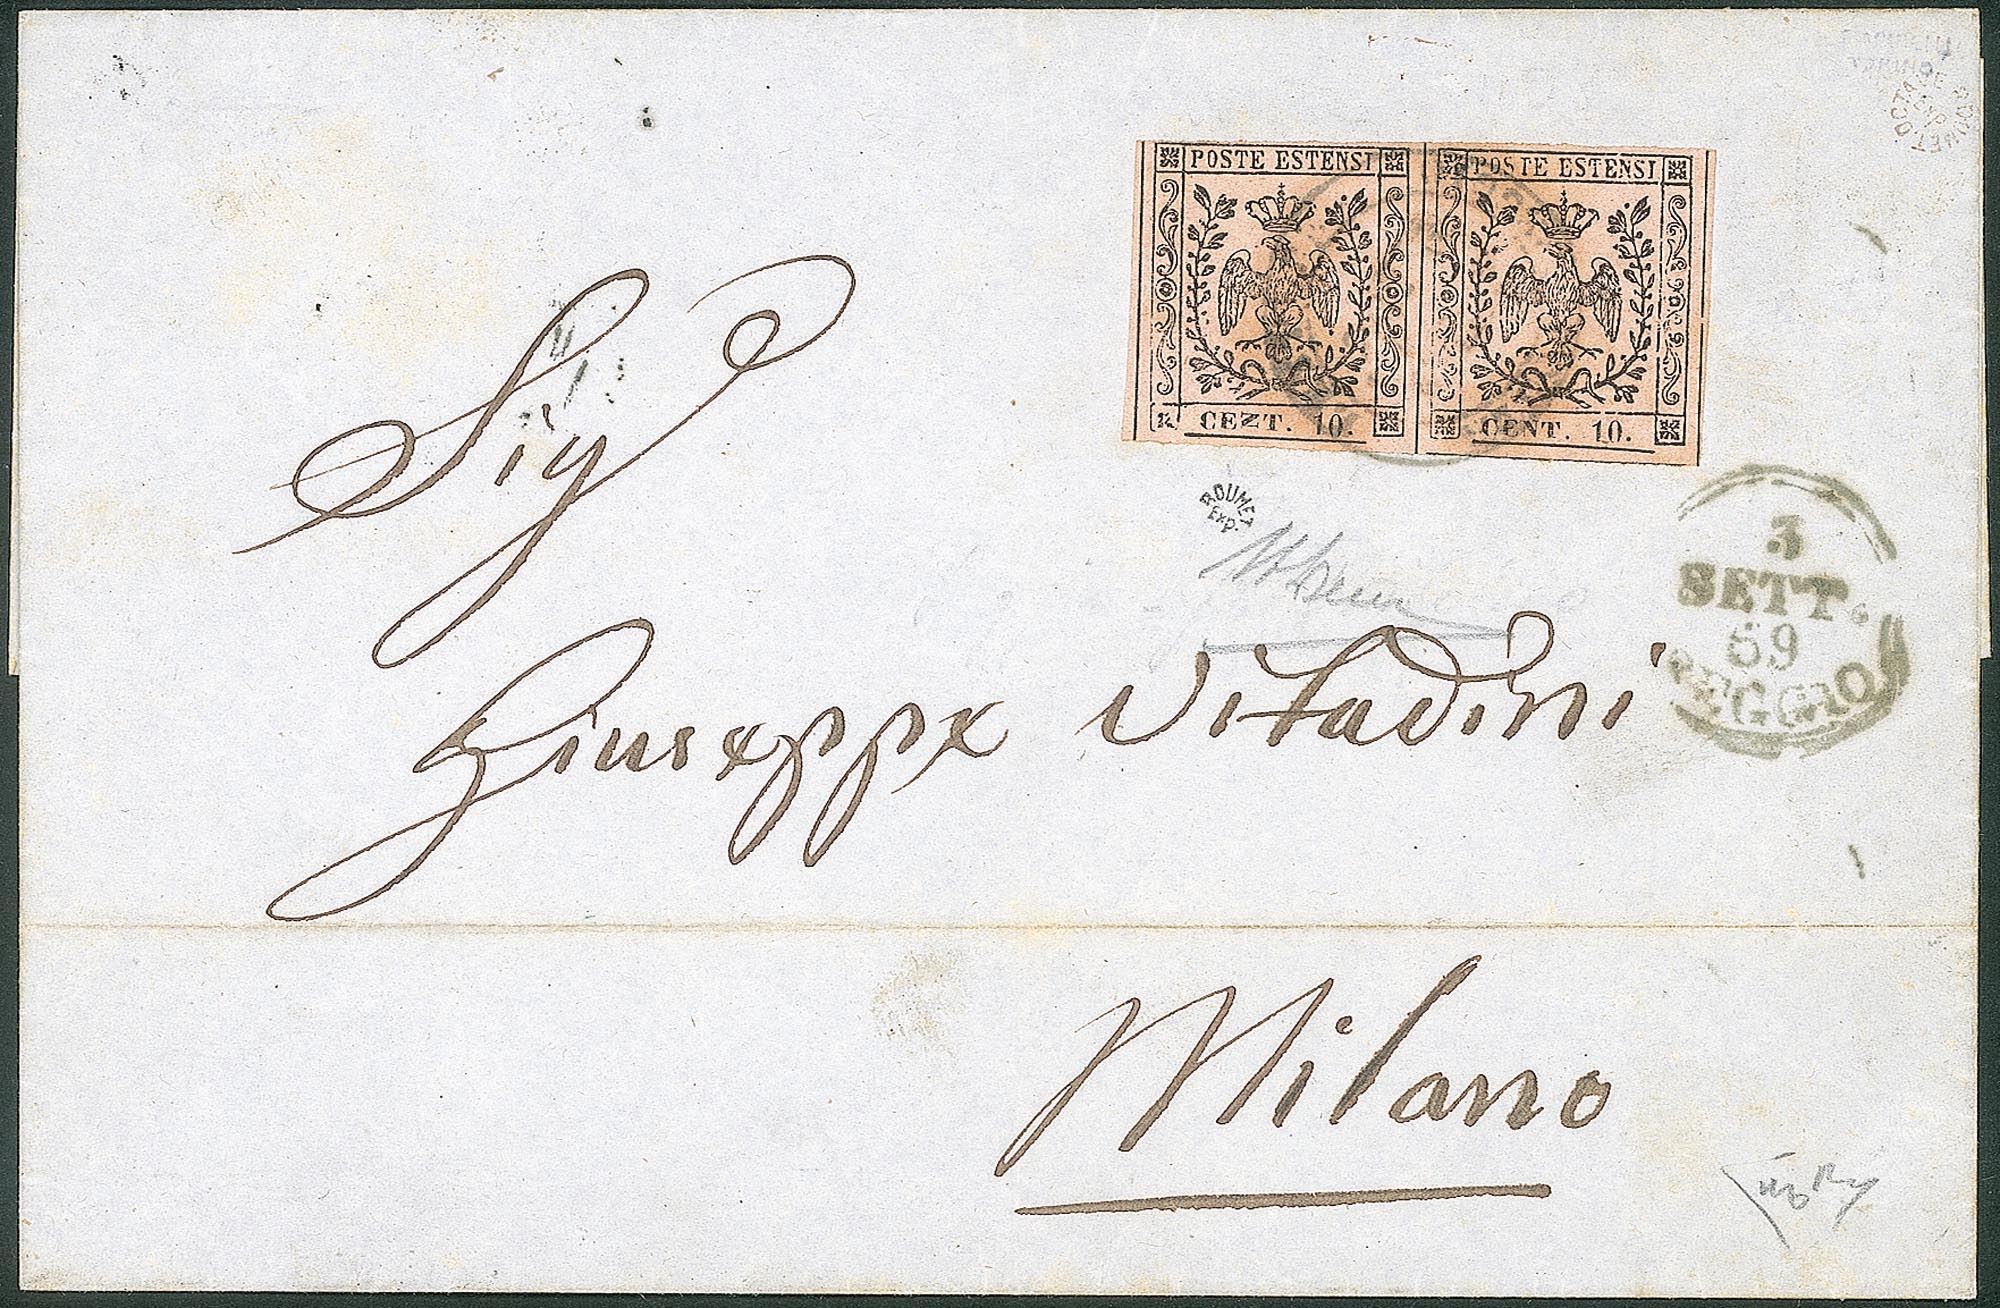 POSTE ESTENSI
CEZT. 10.
POSTE ESTENSI
CENT. 10.
ROUMET
Exp.
3
SETT.
59
REGGIO
Sig
Giuseppe Vitadini
Milano